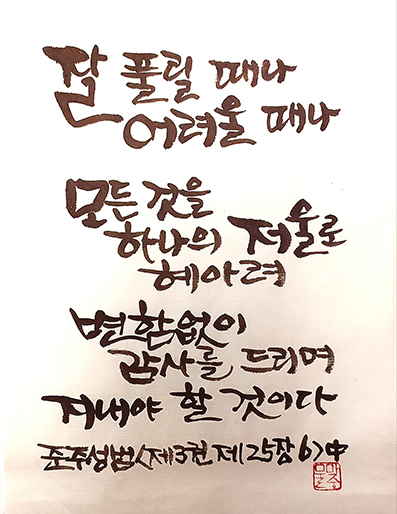 잘 풀릴 때나
어려울 때나
모든 것을
하나의 저울로
헤아려
변함없이
감사를 드리며
지내야 할 것이다
준주성범<제3권 제25장6>中